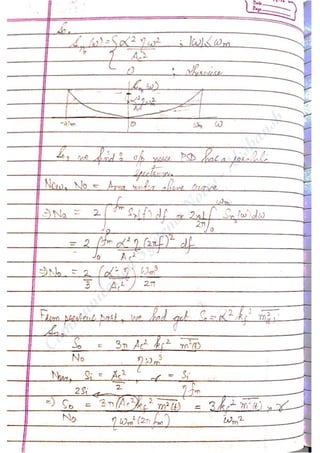 So,
S_n0(ω) = { α² η ω² / A_c² ; |ω| < ω_m
0 ; otherwise
S_n(ω)
-ω_m 0 ω_m ω
So, we find o/p noise PSD has a parabolic
spectrum
Now, No = Area under above curve
⇒ No = 2 ∫₀^fm S_n(f) df = 2 × 1/2π ∫₀^ωm S_n(ω) dω
= 2 ∫₀^fm α² η/A_c² (2πf)² df
⇒ No = 2/3 (α² η / A_c²) ω_m³ / 2π
From previous part, we had got So = α² k_f² m²(t)
So,
So/No = 3π A_c² k_f² m²(t) / η ω_m³
Now, Si = A_c²/2, γ = Si / η f_m
2Si
⇒ So/No = 3π (A_c²) k_f² m²(t) / η ω_m² (2π f_m) = 3 k_f² m²(t) / ω_m² × γ